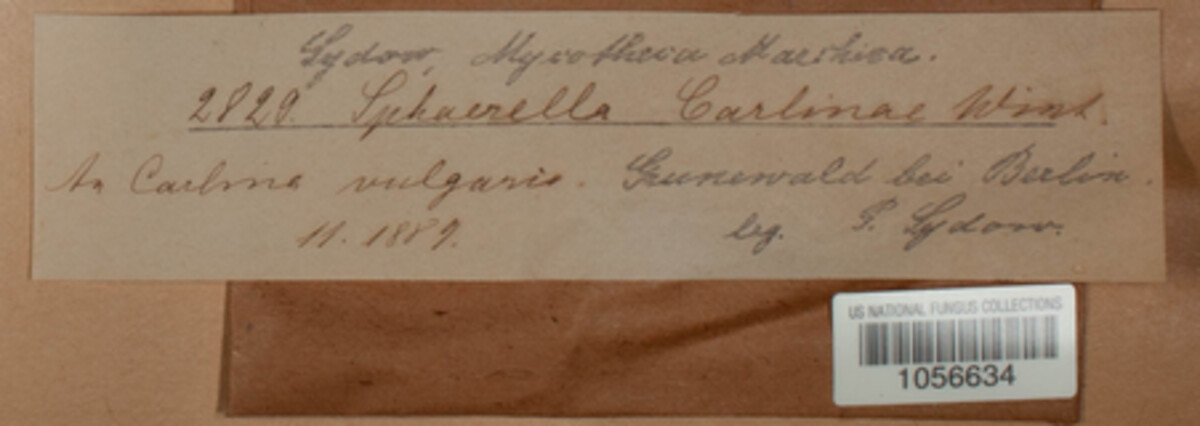 Sydow, Mycotheca Marchica.
2829. Sphaerella Carlinae Wint.
An Carlina vulgaris. Grunewald bei Berlin.
11. 1889. leg. P. Sydow.
US NATIONAL FUNGUS COLLECTIONS
1056634